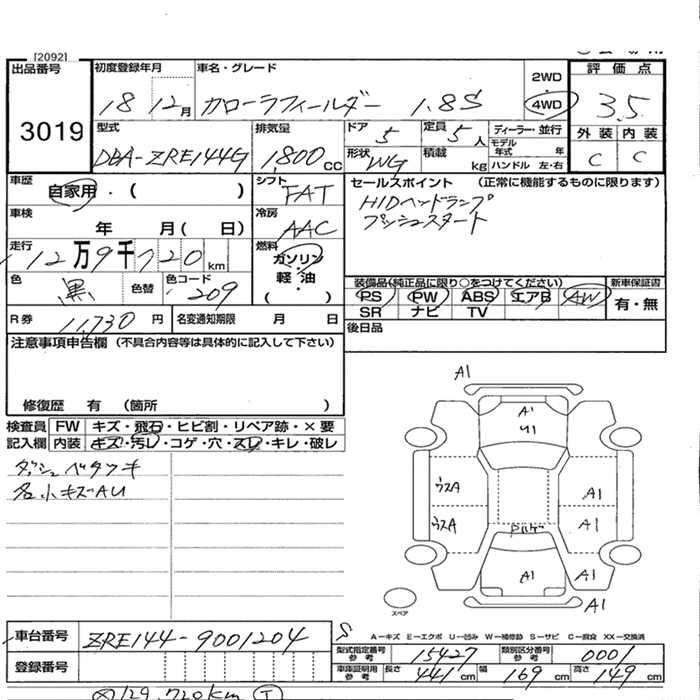 [2092]
出品番号
3019
初度登録年月 車名・グレード
18 12月 カローラフィールダー 1.8S
2WD
4WD
評価点
3.5
外装 内装
C C
型式 排気量
DBA-ZRE144G 1,800cc
ドア 5 定員 5人
ディーラー・並行
モデル年式 年
形状 WG 積載 kg
ハンドル 左・右
車歴 自家用・( )
シフト FAT
車検 年 月( 日)
冷房 AAC
走行 12万9千720km
燃料 ガソリン・軽油・( )
色 黒 色替 色コード 209
R券 11,730円 名変通知期限 月 日
セールスポイント (正常に機能するものに限ります)
HIDヘッドランプ
プッシュスタート
装備品(純正品に限り○をつけてください) 新車保証書
PS PW ABS エアB AW 有・無
SR ナビ TV
後日品
注意事項申告欄(不具合内容等は具体的に記入して下さい)
修復歴 有(箇所 )
検査員記入欄
FW キズ・飛石・ヒビ割・リペア跡・×要
内装 キズ・汚レ・コゲ・穴・スレ・キレ・破レ
ダッシュベタツキ
各小キズAU
A1
A1
U1
ウスA A1
ウスA A1
A1 A1
A1
スペア
A—キズ E—エクボ U—凹み W—補修跡 S—サビ C—腐食 XX—交換済
車台番号 ZRE144-9001204
登録番号
型式指定番号参考 15427 類別区分番号参考 0001
車庫証明用参考 長さ 441cm 幅 169cm 高さ 149cm
129,720km